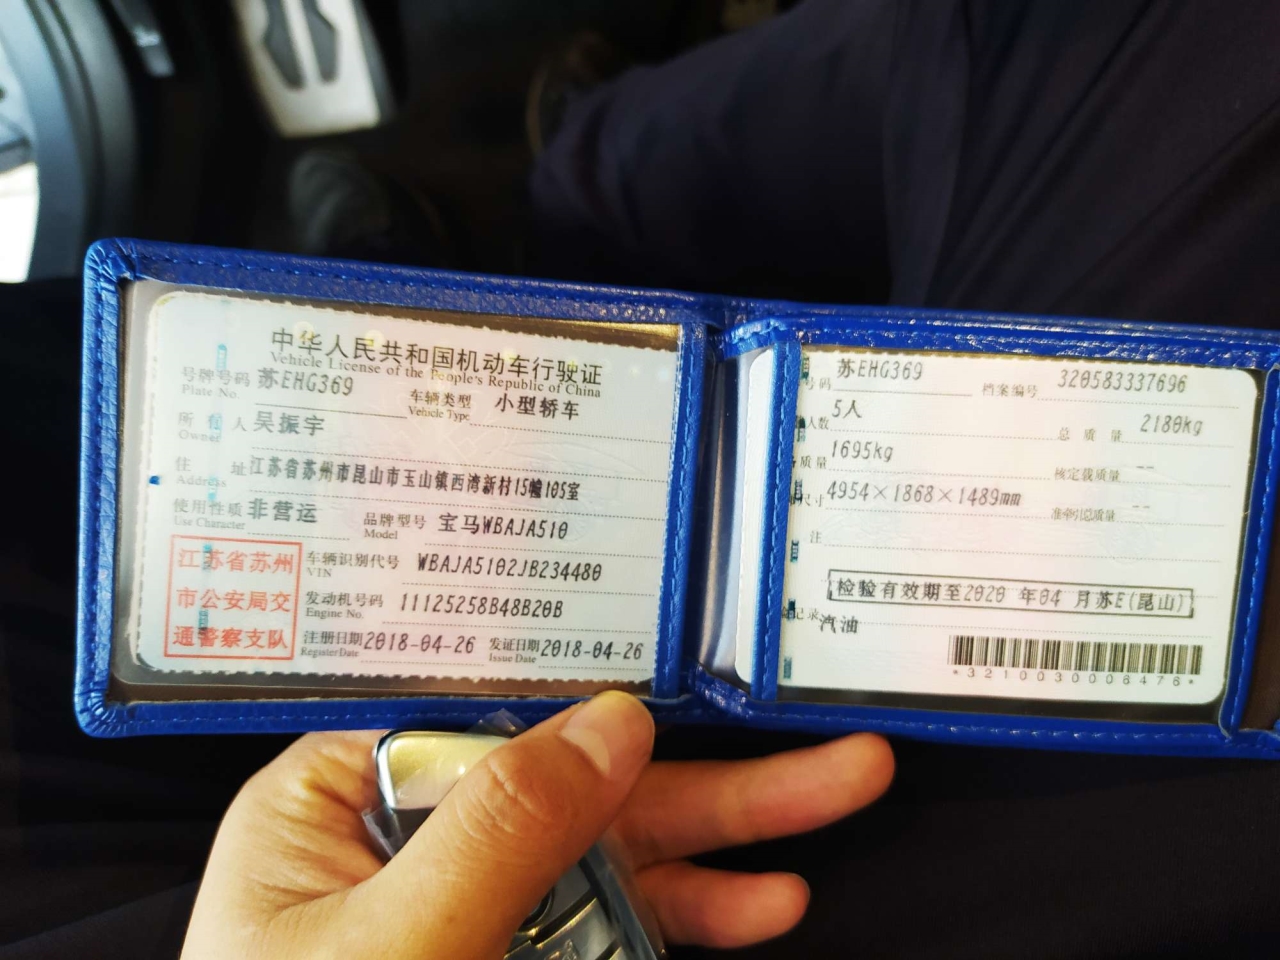 中华人民共和国机动车行驶证
Vehicle License of the People's Republic of China
号牌号码 苏EHG369 车辆类型 小型轿车
Plate No. Vehicle Type
所有人 吴振宇
Owner
住址 江苏省苏州市昆山市玉山镇西湾新村15幢105室
Address
使用性质 非营运 品牌型号 宝马WBAJA510
Use Character Model
江苏省苏州
市公安局交
通警察支队
车辆识别代号 WBAJA5102JB234480
VIN
发动机号码 11125258B48B20B
Engine No.
注册日期 2018-04-26 发证日期 2018-04-26
Register Date Issue Date
号码 苏EHG369 档案编号 320583337696
人数 5人 总质量 2180kg
质量 1695kg 核定载质量 --
尺寸 4954×1868×1489mm 准牵引总质量 --
注
检验有效期至2020 年04 月苏E(昆山)
记录 汽油
*3210030008476*